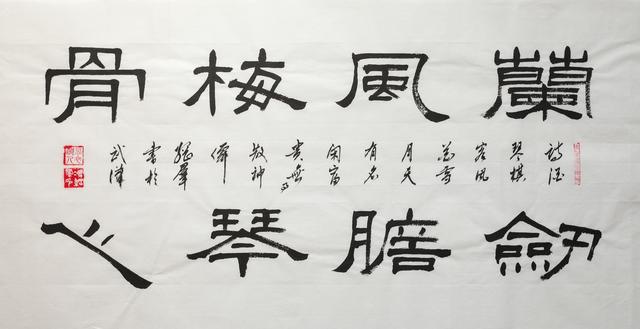 蘭風梅骨
劍膽琴心
詩酒
琴棋
客風
花雪
月天
有名
閑富
貴無事
散神
書於
武漢